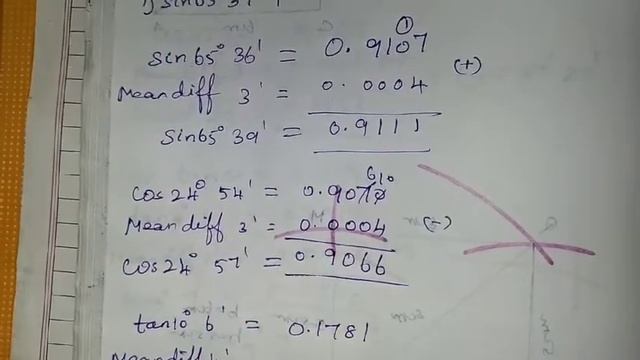 1) sin65° 39'
sin65° 36' = 0.9107 (1)
Mean diff 3' = 0.0004 (+)
sin65° 39' = 0.9111
cos24° 54' = 0.9070 6 10
Mean diff 3' = 0.0004 (-)
cos24° 57' = 0.9066
tan10° 6' = 0.1781
Mean diff 1'